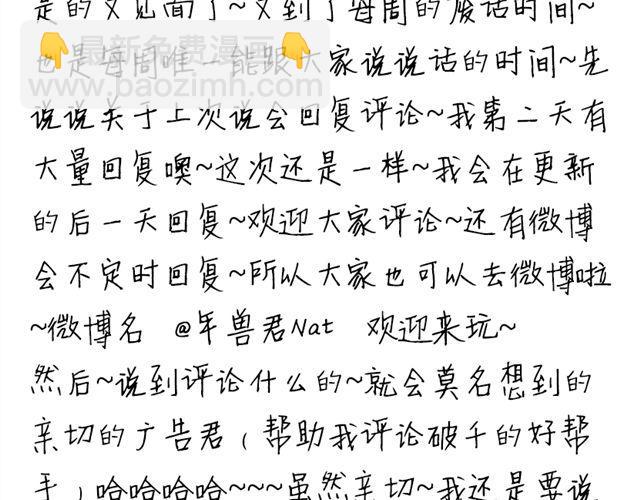 是的又见面了~又到了每周的废话时间~
也是每周唯一能跟大家说说话的时间~先
说说关于上次说会回复评论~我第二天有
大量回复噢~这次还是一样~我会在更新
的后一天回复~欢迎大家评论~还有微博
会不定时回复~所以大家也可以去微博啦
~微博名 @年兽君Nat 欢迎来玩~
然后~说到评论什么的~就会莫名想到的
亲切的广告君(帮助我评论破千的好帮
手)哈哈哈哈~~~虽然亲切~我还是要说
最新免费漫画
www.baozimh.com